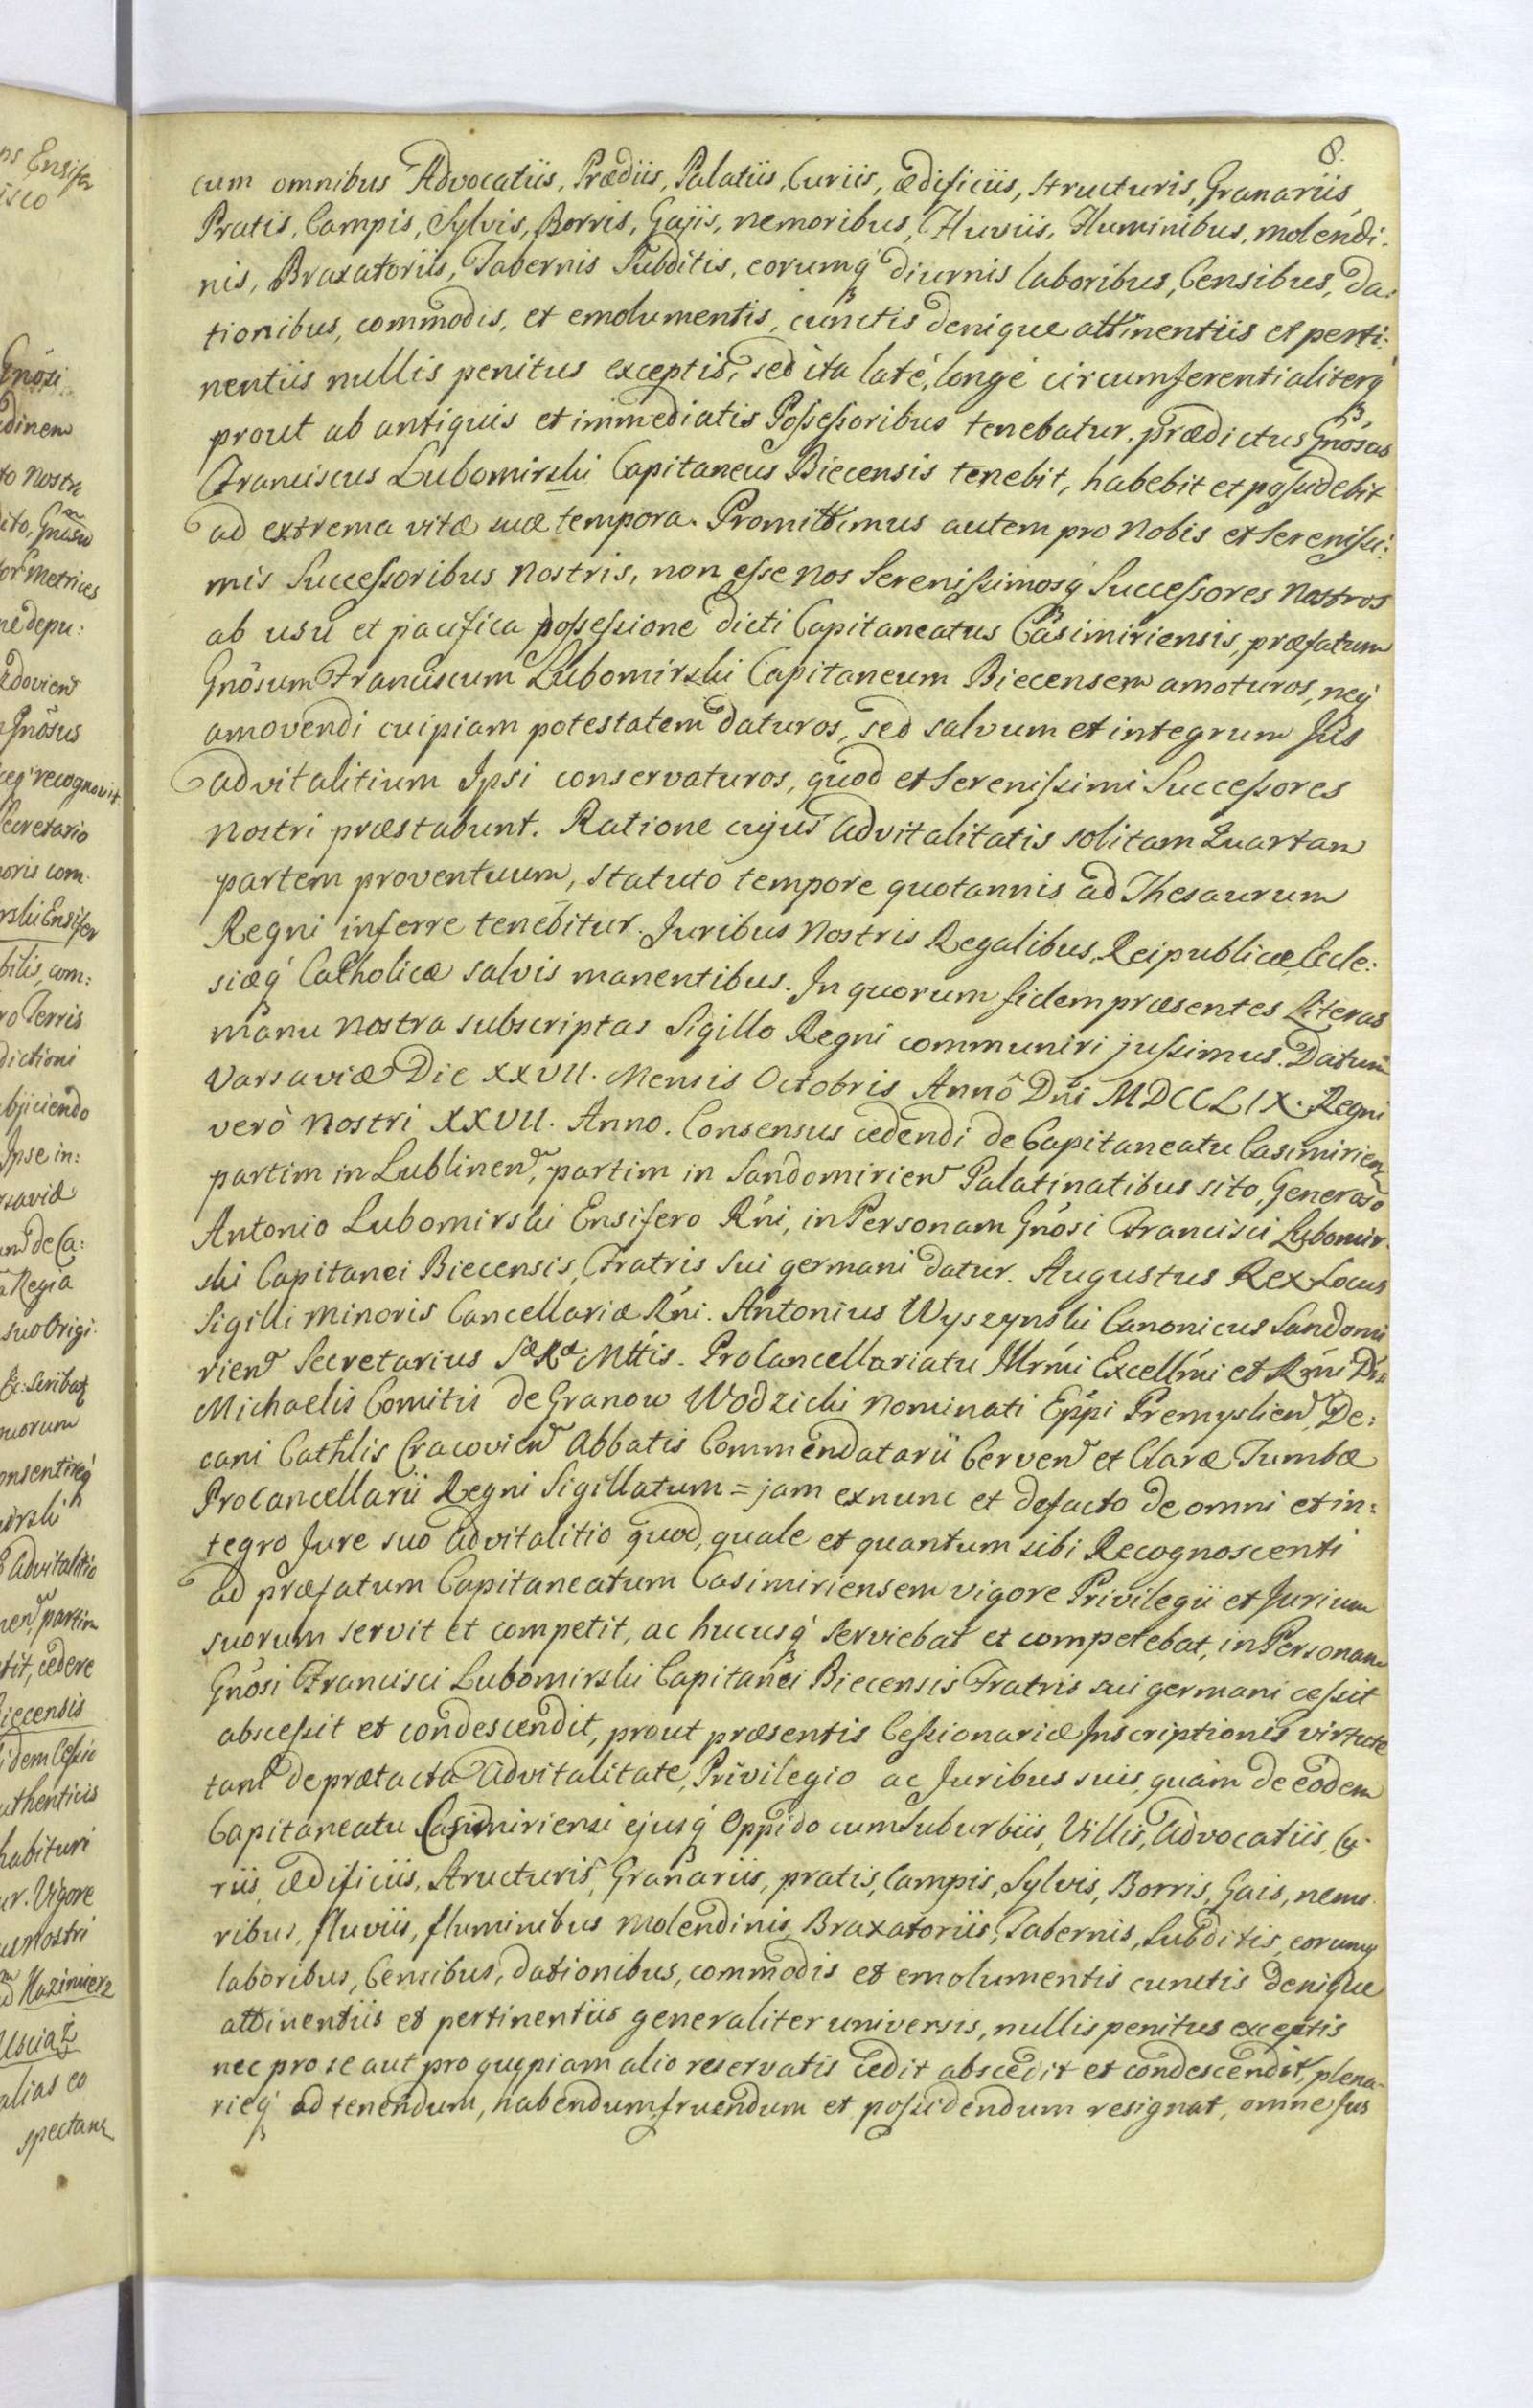 8.
cum omnibus Advocatiis, Prædiis, Palatiis, Curiis, ædificiis, structuris, Granariis
Pratis, Campis, Sylvis, Borris, Gajis, nemoribus, Fluviis, Fluminibus, molendi:
nis, Braxatoriis, Tabernis Subditis, eorumq́ diurnis laboribus, Censibus, da:
tionibus, commodis, et emolumentis, cunctis denique attinentiis et perti:
nentiis nullis penitus exceptis, sed ita laté, longé circumferentialiterq́
prout ab antiquis et immediatis Poſseſsoribus tenebatur. prædictus Gnosus
Franciscus Lubomirski Capitaneus Biecensis tenebit, habebit et poſsidebit
ad extrema vitæ suæ tempora. Promittimus autem pro Nobis et Sereniſsi:
mis Succeſsoribus Nostris, non eſse Nos Sereniſsimosq́ Succeſsores Nostros
ab usu et pacifica poſseſsione dicti Capitaneatus Casimiriensis, præfatum
Gnosum Franciscum Lubomirski Capitaneum Biecensem amoturos, neq́
amovendi cuipiam potestatem daturos, sed salvum et integrum Jus
advitalitium Ipsi conservaturos, quod et Sereniſsimi Succeſsores
Nostri præstabunt. Ratione cujus advitalitatis solitam Quartam
partem proventuum, statuto tempore quotannis ad Thesaurum
Regni inferre tenebitur. Juribus Nostris Regalibus, Reipublicæ, Eccle:
siæq́ Catholicæ salvis manentibus. In quorum fidem præsentes Literas
manu Nostra subscriptas Sigillo Regni communiri juſsimus. Datum
Varsaviæ Die XXVII. Mensis Octobris Annô Dni MDCCLIX. Regni
verò Nostri XXVII. Anno. Consensus cedendi de Capitaneatu Casimirien
partim in Lublinen, partim in Sandomirien Palatinatibus sito, Generoso
Antonio Lubomirski Ensifero Rńi, in Personam Gnósi Francisci Lubomir:
ski Capitanei Biecensis, Fratris sui germani datur. Augustus Rex Locus
Sigilli Minoris Cancellariæ Rńi. Antonius Wyszynski Canonicus Sandomi
rien Secretarius Sæ Ræ Mttis. Procancellariatu Illrḿi Excellḿi et Rḿi Dńi
Michaelis Comitis de Granow Wodzicki Nominati Eppi Premyslien, De:
cani Cathlis Cracovien Abbatis Commendatarii Cerven et Claræ Tumbæ
Procancellarii Regni Sigillatum = jam exnunc et defacto de omni et in:
tegro Jure suo advitalitio quod, quale et quantum sibi Recognoscenti
ad præfatum Capitaneatum Casimiriensem vigore Privilegii et Jurium
suorum servit et competit, ac hucusq́ serviebat et competebat, in Personam
Gnósi Francisci Lubomirski Capitanei Biecensis Fratris sui germani ceſsit
absceſsit et condescendit, prout præsentis Ceſsionariæ Inscriptionis virtute
tam de prætacta advitalitate, Privilegio ac Juribus suis, quàm de eodem
Capitaneatu Casimiriensi ejusq́ Oppido cum Suburbiis, Villis, Advocatiis, Cu:
riis ædificiis, Structuris, Granariis, pratis, Campis, Sylvis, Borris, Gais, nemo
ribus, fluviis, fluminibus Molendinis, Braxatoriis, Tabernis, Subditis, eorumq́
laboribus, Censibus, dationibus, commodis et emolumentis cunctis denique
attinentiis et pertinentiis generaliter universis, nullis penitus exceptis
nec pro se aut pro quopiam alio reservatis cedit abscedit et condescendit, plena:
rieq́ ad tenendum, habendum, fruendum et poſsidendum resignat, omne Jus